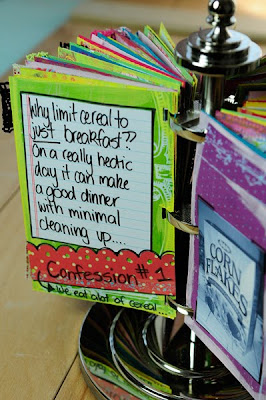 Why limit cereal to
just breakfast??
On a really hectic
day it can make
a good dinner
with minimal
cleaning up....
Confession #1
We eat alot of cereal
CORN
FLAKES